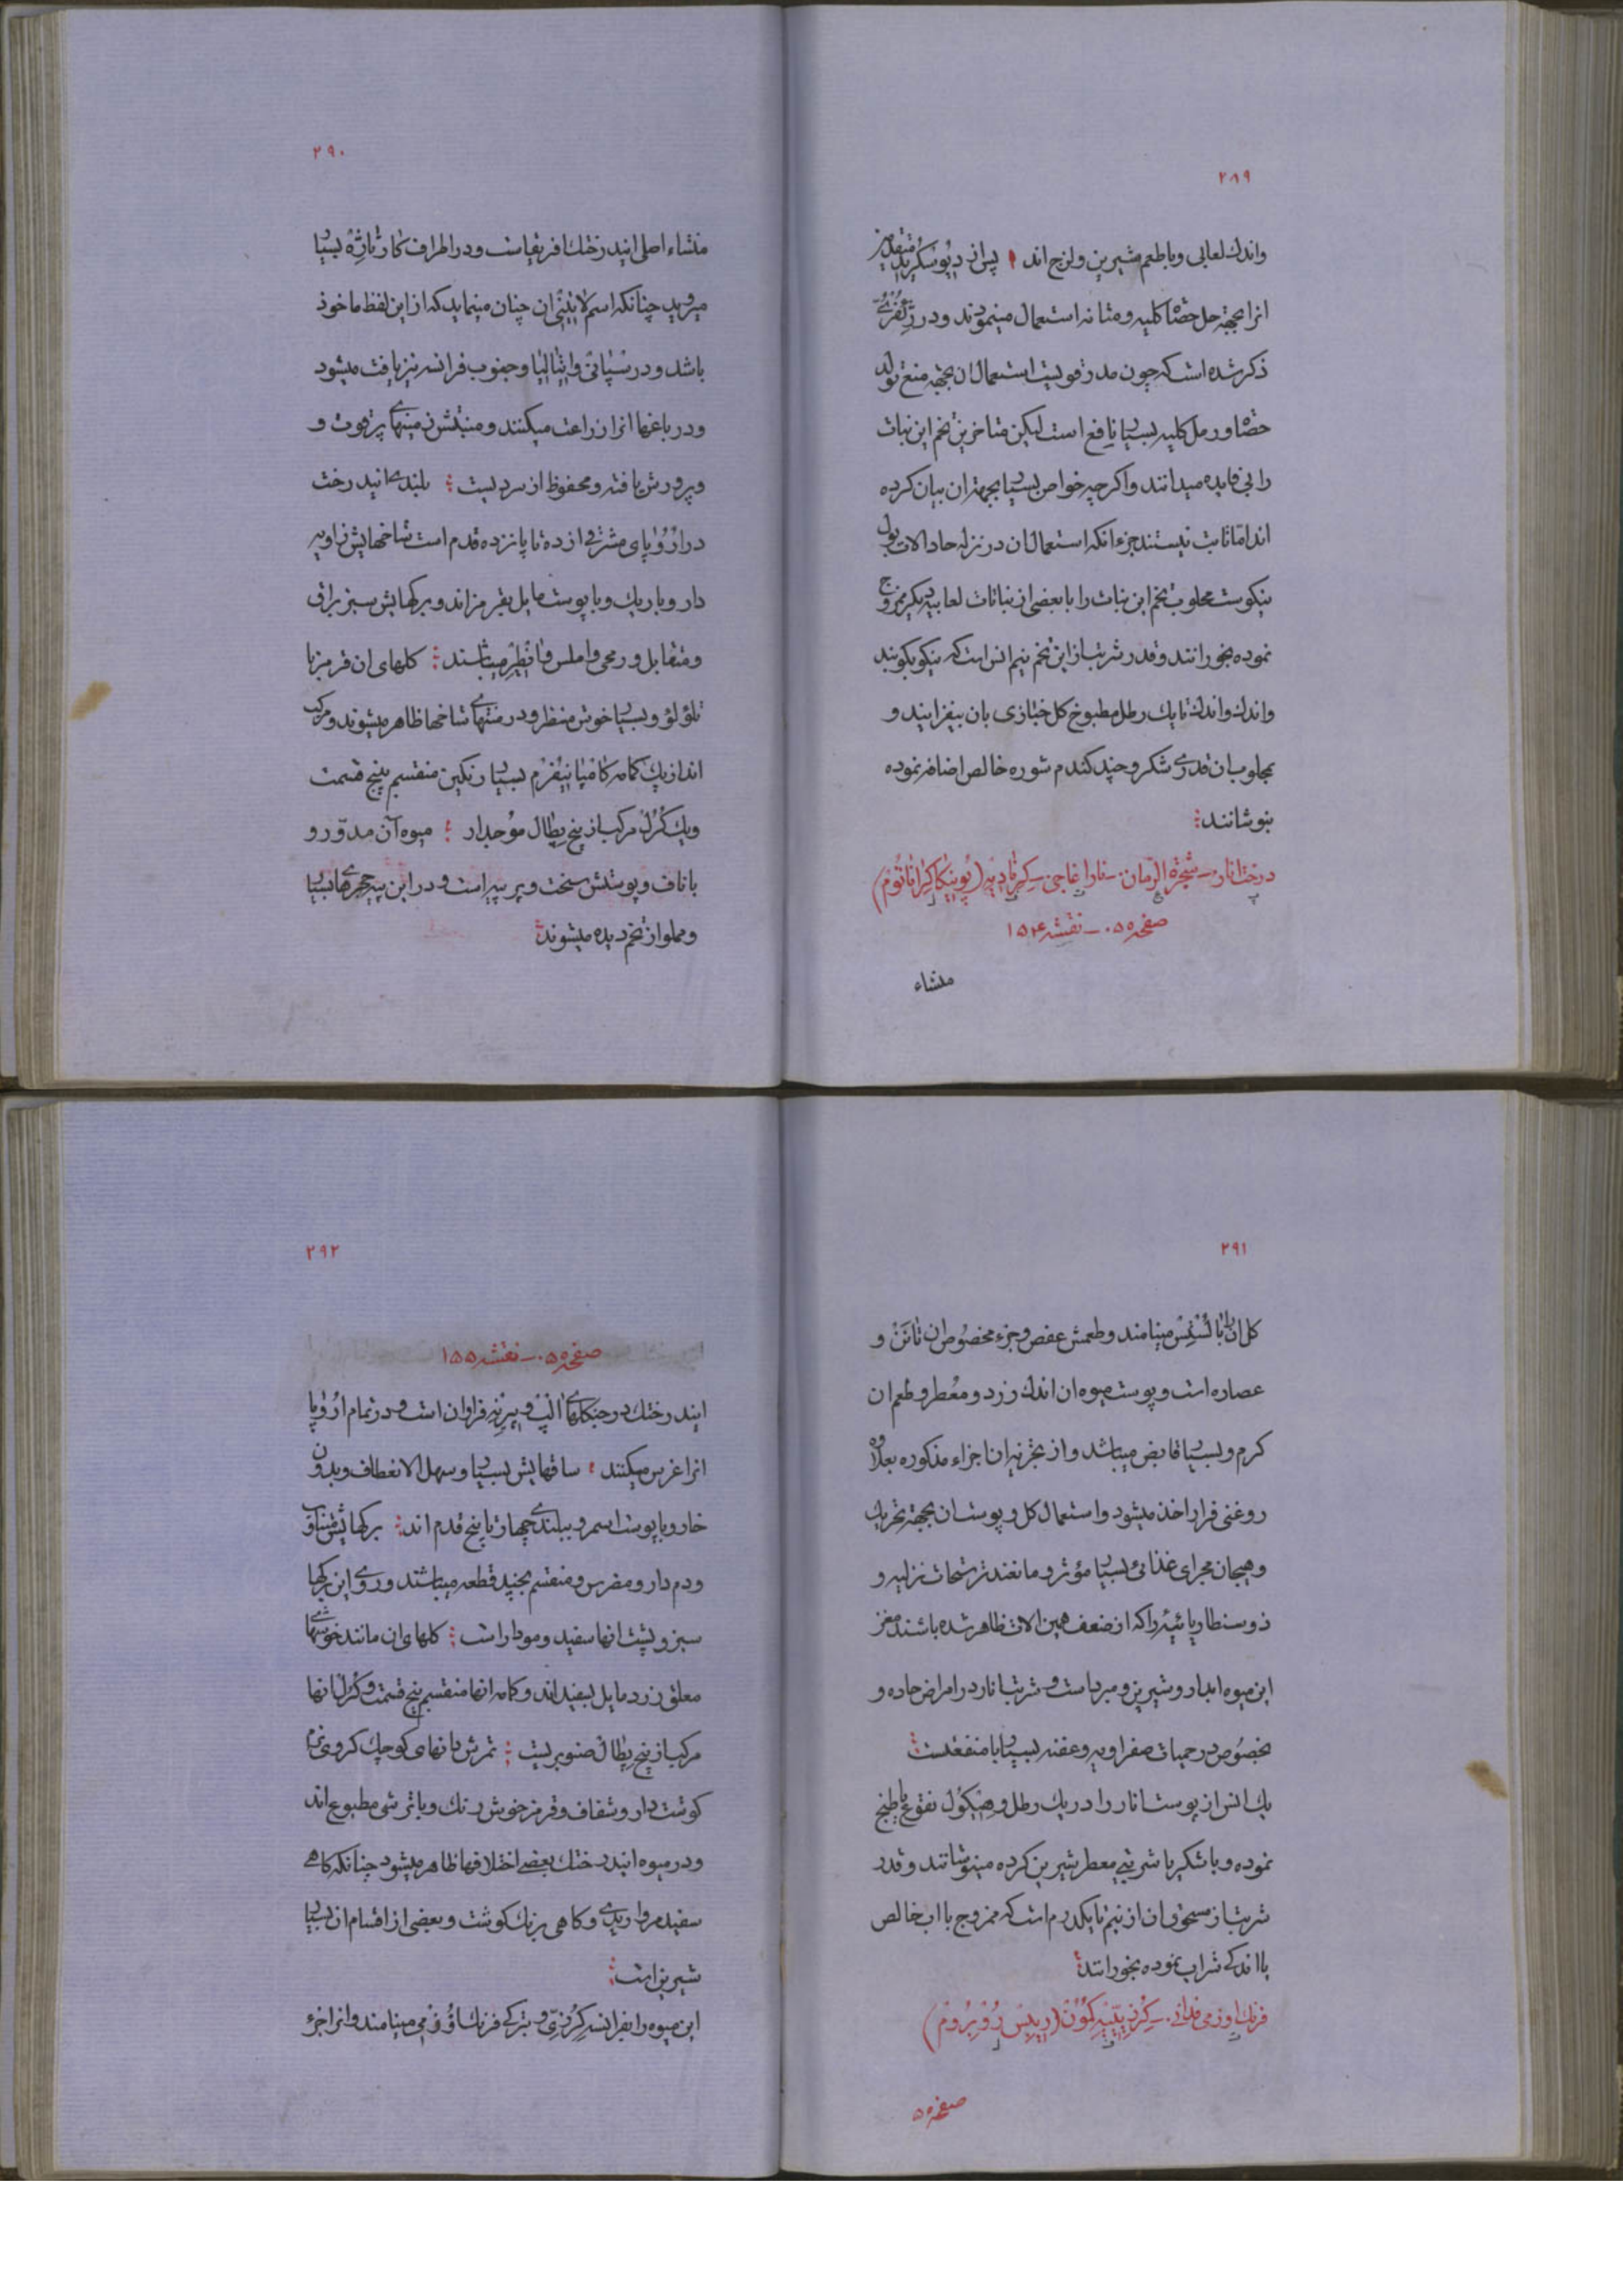 ۲۸۹
واندك لعابی وباطعم شیرین ولزج اند پس از دیوسکرید متقدمین
انرا بجهة حل حصاة کلیه ومثانه استعمال مینمودند ودر
ذکر شده است که چون مدر قویست استعمال ان بجهة منع تولد
حصاة ورمل کلیه بسیار نافع است لیکن متاخرین تخم این نبات
را بی فایده میدانند واکرچه خواص بسیار بجهة ان بیان کرده
اند اما ثابت نیستند جزء انکه استعمال ان در نزله حاد الات بول
نیکوست محلوب تخم این نبات را با بعضی از نباتات لعابیه دیکر ممزوج
نموده بخورانند وقدر شربت از این تخم نیم انس است که نیکو بکوبند
واندك واندك تا یك رطل مطبوخ کل خبازی بان بیفزایند و
بمحلوب ان قدری شکر وچند کندم شوره خالص اضافه نموده
بنوشانند
درخت انار - شجرة الرمان - نار اغاجی - کرنادیه (پونیکا کراناتوم)
صفحه ۵۵۰ - نقشه ۱۵۴
منشاء
۲۹۰
منشاء اصلی ایندرخت افریقاست ودر اطراف کارتاژه بسیار
میروید چنانکه اسم لاتینی ان چنان مینماید که از این لفظ ماخوذ
باشد ودر سپانی وایتالیا وجنوب فرانسه نیز یافت میشود
ودر باغها انرا زراعت میکنند ومنبتش زمینهای پرقوت و
وپرورش یافته ومحفوظ از سردیست بلندی ایندرخت
در اروپای مشرقی از ده تا پانزده قدم است شاخهایش زاویه
دار وباریك وبا پوست مایل بقرمز اند وبرکهایش سبز براق
ومتقابل ورمحی واملس وانطیر میباشند کلهای ان قرمز با
تلؤلؤ وبسیار خوش منظر ودر منتهای شاخها ظاهر میشوند ومرکب
اند از یك کامه کامپانیفرم بسیار رنکین منقسم بپنج قسمت
ویك کرل مرکب از پنج پطال موجدار میوه آن مدور و
با ناف وپوستش سخت وپر پیه است ودر این پیه حجرهای بسیار
ومملو از تخم دیده میشوند
۲۹۱
کل ان را بالستس مینامند وطعمش عفص وجزء مخصوص ان تانن و
عصاره است وپوست میوه ان اندك زرد ومعطر وطعم ان
کرم وبسیار قابض میباشد واز تجزیه ان اجزاء مذکوره بعلاوه
روغنی فرار اخذ میشود واستعمال کل وپوست ان بجهة تحریك
وهیجان مجرای غذائی بسیار مؤثر ومانعند ترشحات نزلیه و
ذوسنطاریائیه را که از ضعف همین الات ظاهر شده باشند مغز
این میوه ابدار وشیرین ومبرد است وشربت انار در امراض حاده و
بخصوص در حمیات صفراویه وعفنه بسیار با منفعتست
یك انس از پوست انار را در یك رطل ونیم کول نقوع یا طبخ
نموده وبا شکر یا شربتی معطر شیرین کرده مینوشانند وقدر
شربت از مسحوق ان از نیم تا یکدرم است که ممزوج با اب خالص
با اندکی شراب نموده بخورانند
فرنك اوزمی فدانی - کرزیه کمون (ریبس روبروم)
صفحه ۵
۲۹۲
صفحه ۵۵۰ - نقشه ۱۵۵
ایندرخت در جنکلهای الپ وپیرنه فراوان است ودر تمام اروپا
انرا غرس میکنند ساقهایش بسیار وسهل الانعطاف وبدون
خار وبا پوست اسمر وببلندی چهار تا پنج قدم اند برکهایش متناوب
ودم دار ومضرس ومنقسم بچند قطعه میباشند وروی این برکها
سبز وپشت انها سفید ومودار است کلهای ان مانند خوشهای
معلق زرد مایل بسفید اند وکامه انها منقسم بپنج قسمت وکرل انها
مرکب از پنج پطال صنوبریست ثمرش دانهای کوچك کروی نرم
کوشت دار وشفاف وقرمز خوش رنك وبا ترشی مطبوع اند
ودر میوه ایندرخت بعضی اختلافها ظاهر میشود چنانکه کاهی
سفید مرواریدی وکاهی برنك کوشت وبعضی از اقسام ان بسیار
شیرین است
این میوه را بفرانسه کرزی وبترکی فرنك اوزومی مینامند وانرا جزء